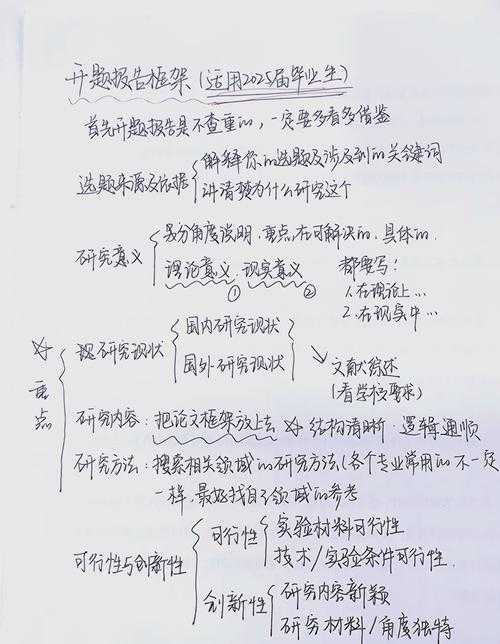 开题报告框架(适用2025届毕业生)
首先开题报告是不查重的,一定要多看多借鉴
选题来源及依据
解释你的选题及涉及到的关键词
讲清楚为什么研究这个
研究意义
多分角度说明,重点在可解决的、具体的.
理论意义 现实意义 都要写!
① ②
1.在理论上…
2.在现实中…
重点
研究现状
国内研究现状
国外研究现状
文献综述
(看学校要求)
研究内容:把论文框架放上去 结构清晰·逻辑通顺
研究方法:搜索相关领域的研究方法(各个专业常用的不一定
一样,最好找自己领域的参考
可行性与创新性
可行性
实验材料可行性
技术/实验条件可行性.
创新性
研究内容新颖
研究材料/角度独特